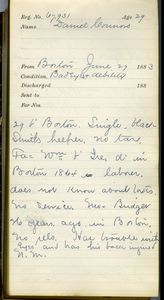 Reg. No. 67931 Age 29
Name Daniel Connors
From Boston June 27 1883
Condition, Bad Eyes & debility
Discharged 188
Sent to
Far Nos.
29 b Boston. Single. Black-
smiths helper, no tax,
Fa = Wm b Ire, d in
Boston 1864 laborer,
does not know about votes
no service. Geo Badger
years ago, in Boston,
no rels. Has trouble with
Eyes and has been
N. M.